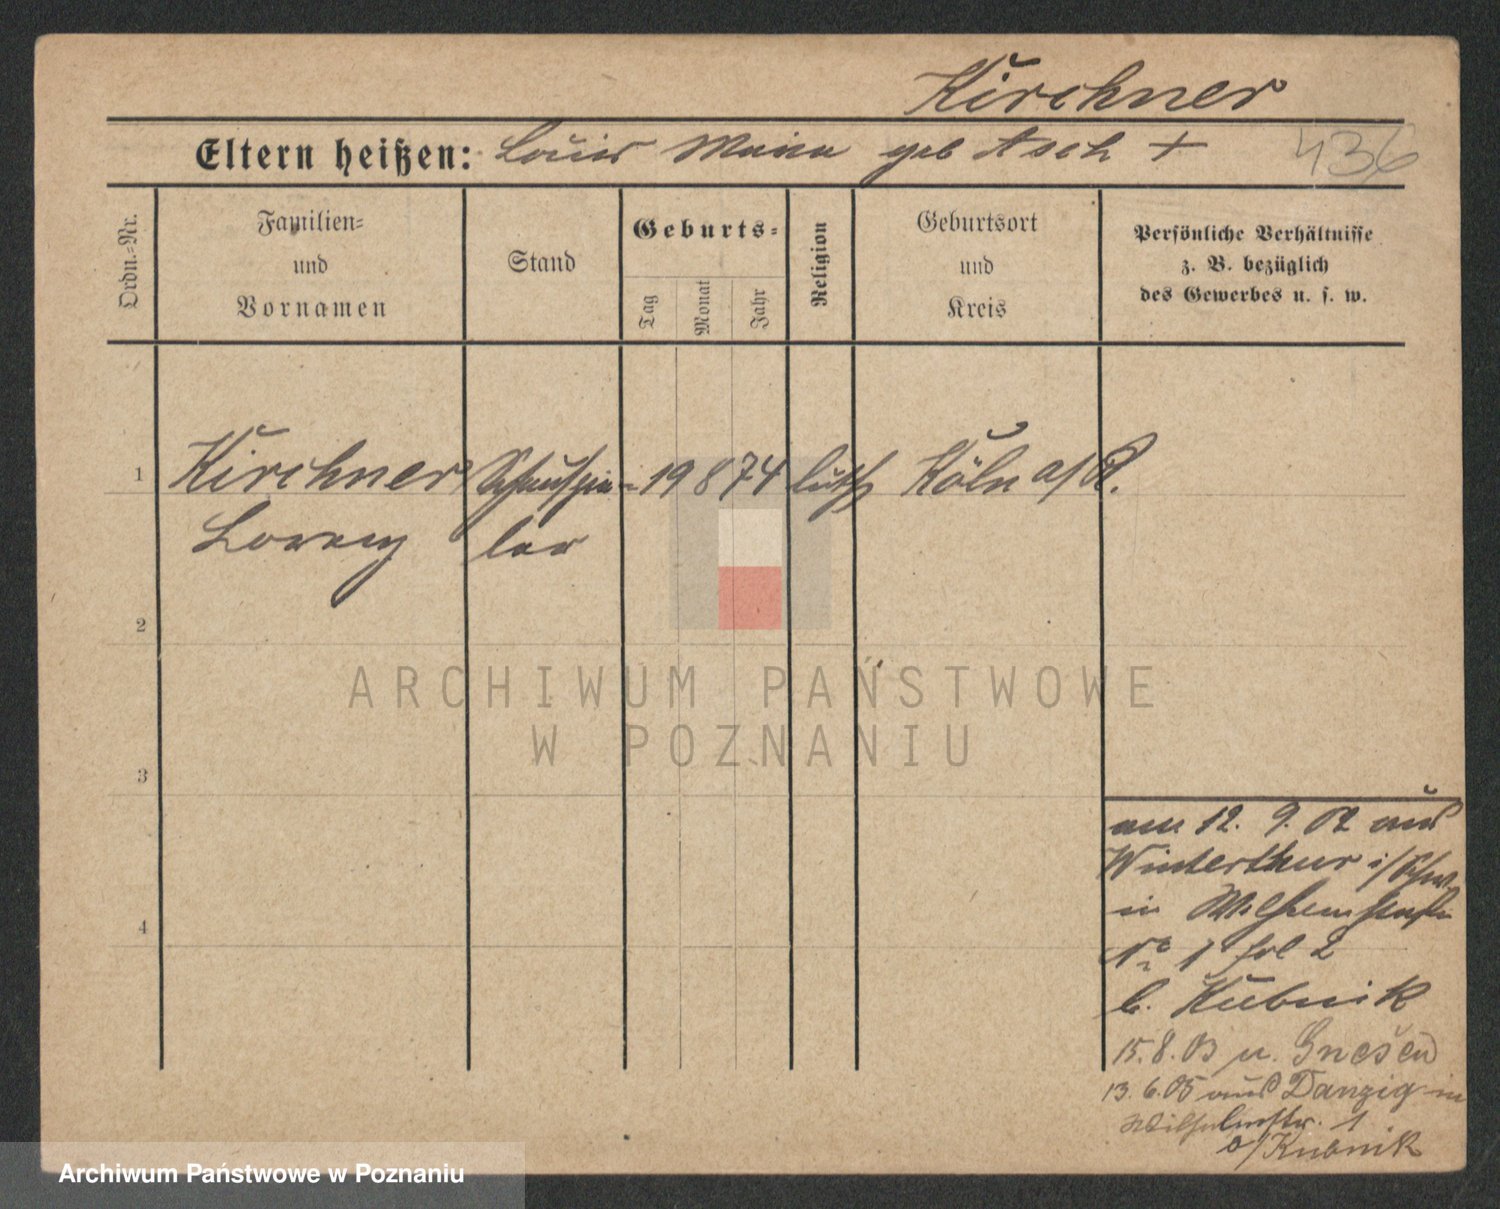 Kirchner
Eltern heißen: Louis Maria geb Asch +
436
Ordn.-Nr.
Familien- und Vornamen
Stand
Geburts-
Tag
Monat
Jahr
Religion
Geburtsort und Kreis
Persönliche Verhältnisse
z. B. bezüglich
des Gewerbes u. s. w.
1 Kirchner Schauspie- 19 8 74 luth Köln a/R.
Lorenz ler
2
3
4
am 12. 9. 02 aus
Winterthur i/Schw.
in Wilhelmstraße
No 1 fol 2
b. Kubnik
15.8.03 n. Gnesen
13.6.05 aus Danzig in
Wilhelmstr. 1
b/Kubnik
ARCHIWUM PAŃSTWOWE
W POZNANIU
Archiwum Państwowe w Poznaniu